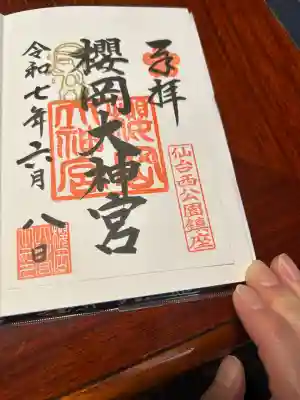 奉拝
櫻岡大神宮
櫻岡大神宮
仙台西公園鎮座
令和七年六月八日